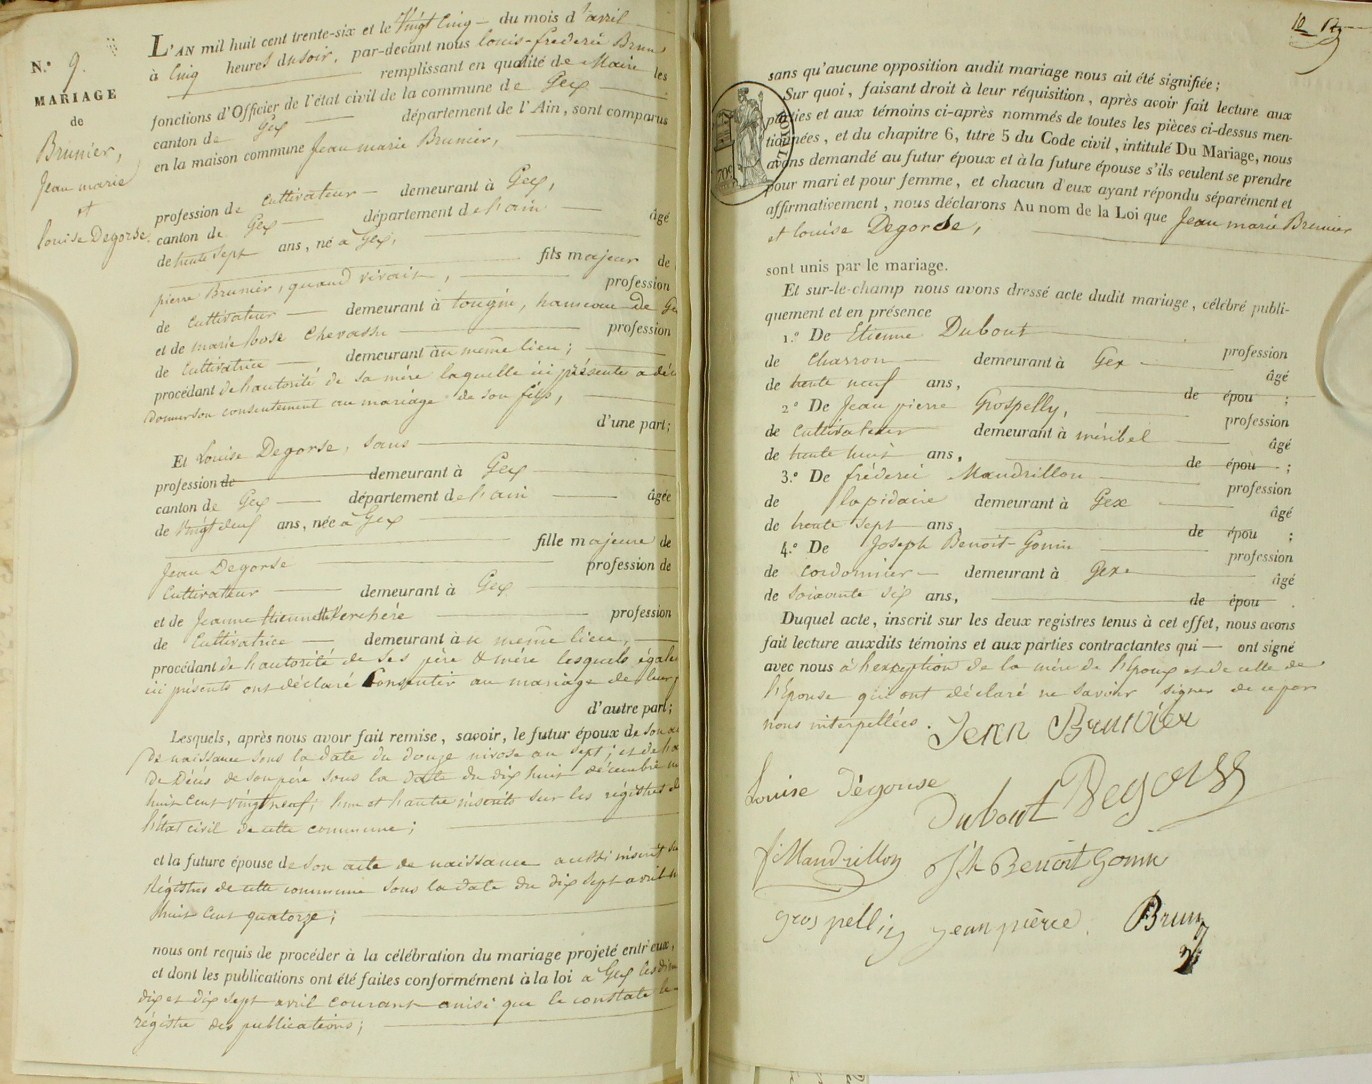 N.º 9.
MARIAGE
de
Brunier,
Jean marie
et
Louise Degorse.
L'AN mil huit cent trente-six et le vingt cinq du mois d'avril
à cinq heures du soir, par-devant nous Louis-fréderic Brun
remplissant en qualité de Maire les
fonctions d'Officier de l'état civil de la commune de Gex
canton de Gex département de l'Ain, sont comparus
en la maison commune Jean marie Brunier,
profession de cultivateur demeurant à Gex,
canton de Gex département de l'ain âgé
de trente sept ans, né à Gex,
fils majeur de
pierre Brunier, quand vivait, profession
de cultivateur demeurant à tougin, hameau de Gex
et de marie Rose Chevassu profession
de cultivatrice demeurant au même lieu;
procédant de l'autorité de sa mère laquelle ici présente a déc
donner son consentement au mariage de son fils,
d'une part;
Et Louise Degorse, sans
profession de demeurant à Gex
canton de Gex département de l'ain âgée
de vingt deux ans, née à Gex
fille majeure de
Jean Degorse profession de
cultivateur demeurant à Gex
et de Jeanne Etiennette Verchère profession
de cultivatrice demeurant au même lieu,
procédant de l'autorité de ses père & mère lesquels égale
ici présents ont déclaré consentir au mariage de leur
d'autre part;
Lesquels, après nous avoir fait remise, savoir, le futur époux de son
de naissance sous la date du douze nivose an sept; et de
de Décès de son père sous la date du dix huit décembre
huit cent vingt neuf; l'un et l'autre inscrits sur les régistres de
l'état civil de cette commune;
et la future épouse de son acte de naissance aussi inscrit
régistres de cette commune sous la date du dix sept avril
huit cent quatorze;
nous ont requis de procéder à la célébration du mariage projeté entr'eux,
et dont les publications ont été faites conformément à la loi à Gex les
dix et dix sept avril courant ainsi que le constate le
régistre des publications;
sans qu'aucune opposition audit mariage nous ait été signifiée;
Sur quoi, faisant droit à leur réquisition, après avoir fait lecture aux
parties et aux témoins ci-après nommés de toutes les pièces ci-dessus men-
tionnées, et du chapitre 6, titre 5 du Code civil, intitulé Du Mariage, nous
avons demandé au futur époux et à la future épouse s'ils veulent se prendre
pour mari et pour femme, et chacun d'eux ayant répondu séparément et
affirmativement, nous déclarons Au nom de la Loi que Jean marie Brunier
et Louise Degorse,
sont unis par le mariage.
Et sur-le-champ nous avons dressé acte dudit mariage, célébré publi-
quement et en présence
1.º De Etienne Dubout profession
de charron demeurant à Gex âgé
de trente neuf ans, de épou ;
2.º De Jean pierre Grospelly, profession
de cultivateur demeurant à méribel âgé
de trente huit ans, de épou ;
3.º De fréderic Mandrillon profession
de lapidaire demeurant à Gex âgé
de trente sept ans, de épou ;
4.º De Joseph Benoit-Gonin profession
de cordonnier demeurant à Gex âgé
de soixante six ans, de épou .
Duquel acte, inscrit sur les deux registres tenus à cet effet, nous avons
fait lecture auxdits témoins et aux parties contractantes qui ont signé
avec nous à l'exception de la mère de l'époux et de celle de
l'épouse qui ont déclaré ne savoir signer de ce par
nous interpellées.
Jean Brunier
Louise Dégorse
Dubout Degorse
f. Mandrillon Jph Benoit Gonin
gros pelliy jean pièrre. Brun